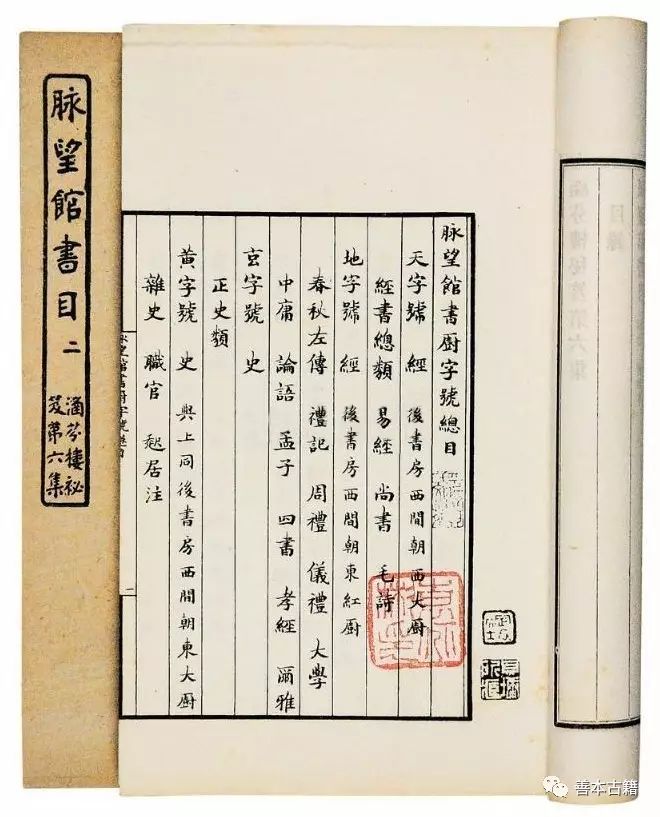 脉望館書目 二
涵芬樓祕
笈第六集
脉望館書厨字號總目
天字號 經 後書房西間朝西大厨
經書總類 易經 尚書 毛詩
地字號 經 後書房西間朝東紅厨
春秋左傳 禮記 周禮 儀禮 大學
中庸 論語 孟子 四書 孝經 爾雅
玄字號 史
正史類
黃字號 史 與上同後書房西間朝東大厨
雜史 職官 起居注
善本古籍